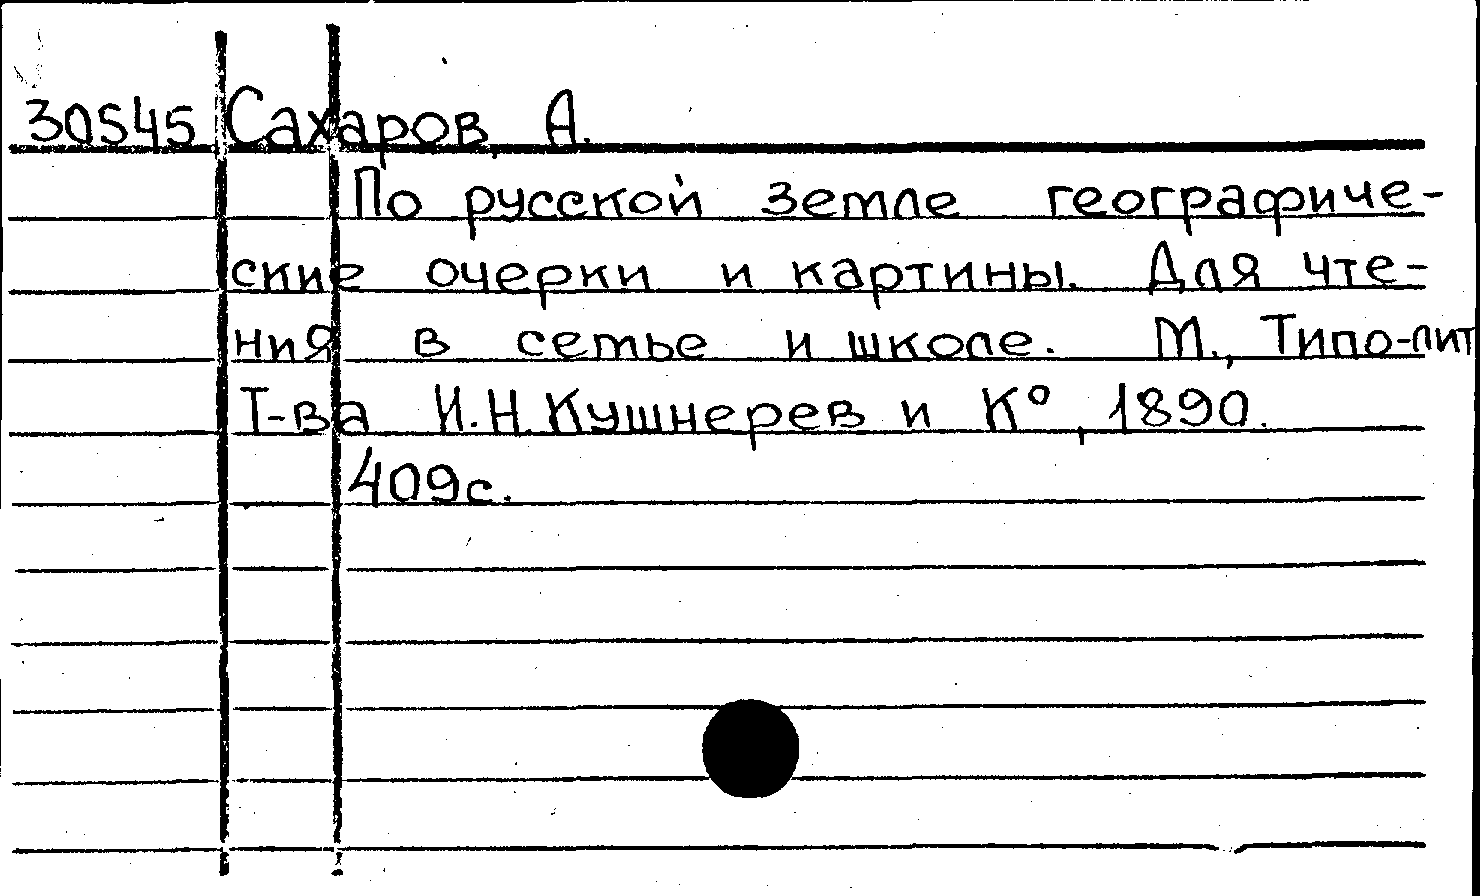 30545 Сахаров, А.
По русской земле географиче-
ские очерки и картины. Для чте-
ния в семье и школе. М., Типо-лит
Т-ва И.Н. Кушнерев и К°, 1890.
409с.